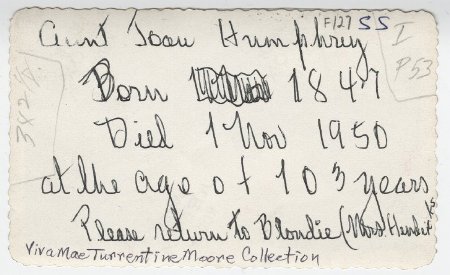 Aunt Joan Humphrey
F127 SS
I
P53
Born 1847
Died 1 Nov 1950
at the age of 103 years
Please return to Blondie (Mrs.
Viva Mae Turrentine Moore Collection